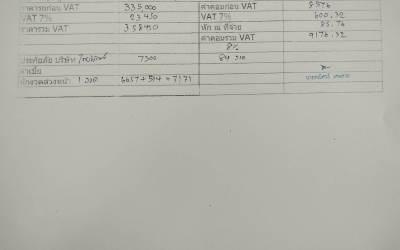 ราคารถก่อน VAT 335,000 ค่าคอมก่อน VAT 8576
VAT 7% 23450 VAT 7% 600,32
ราคารวม VAT 358450 หัก ณ ที่จ่าย 85.76
ค่าคอมรวม VAT 9176,32
8%
ประกันภัย บริษัท 7500
ค่าเบี้ย
หักงวดล่วงหน้า 1 งวด 6657+514 = 7171